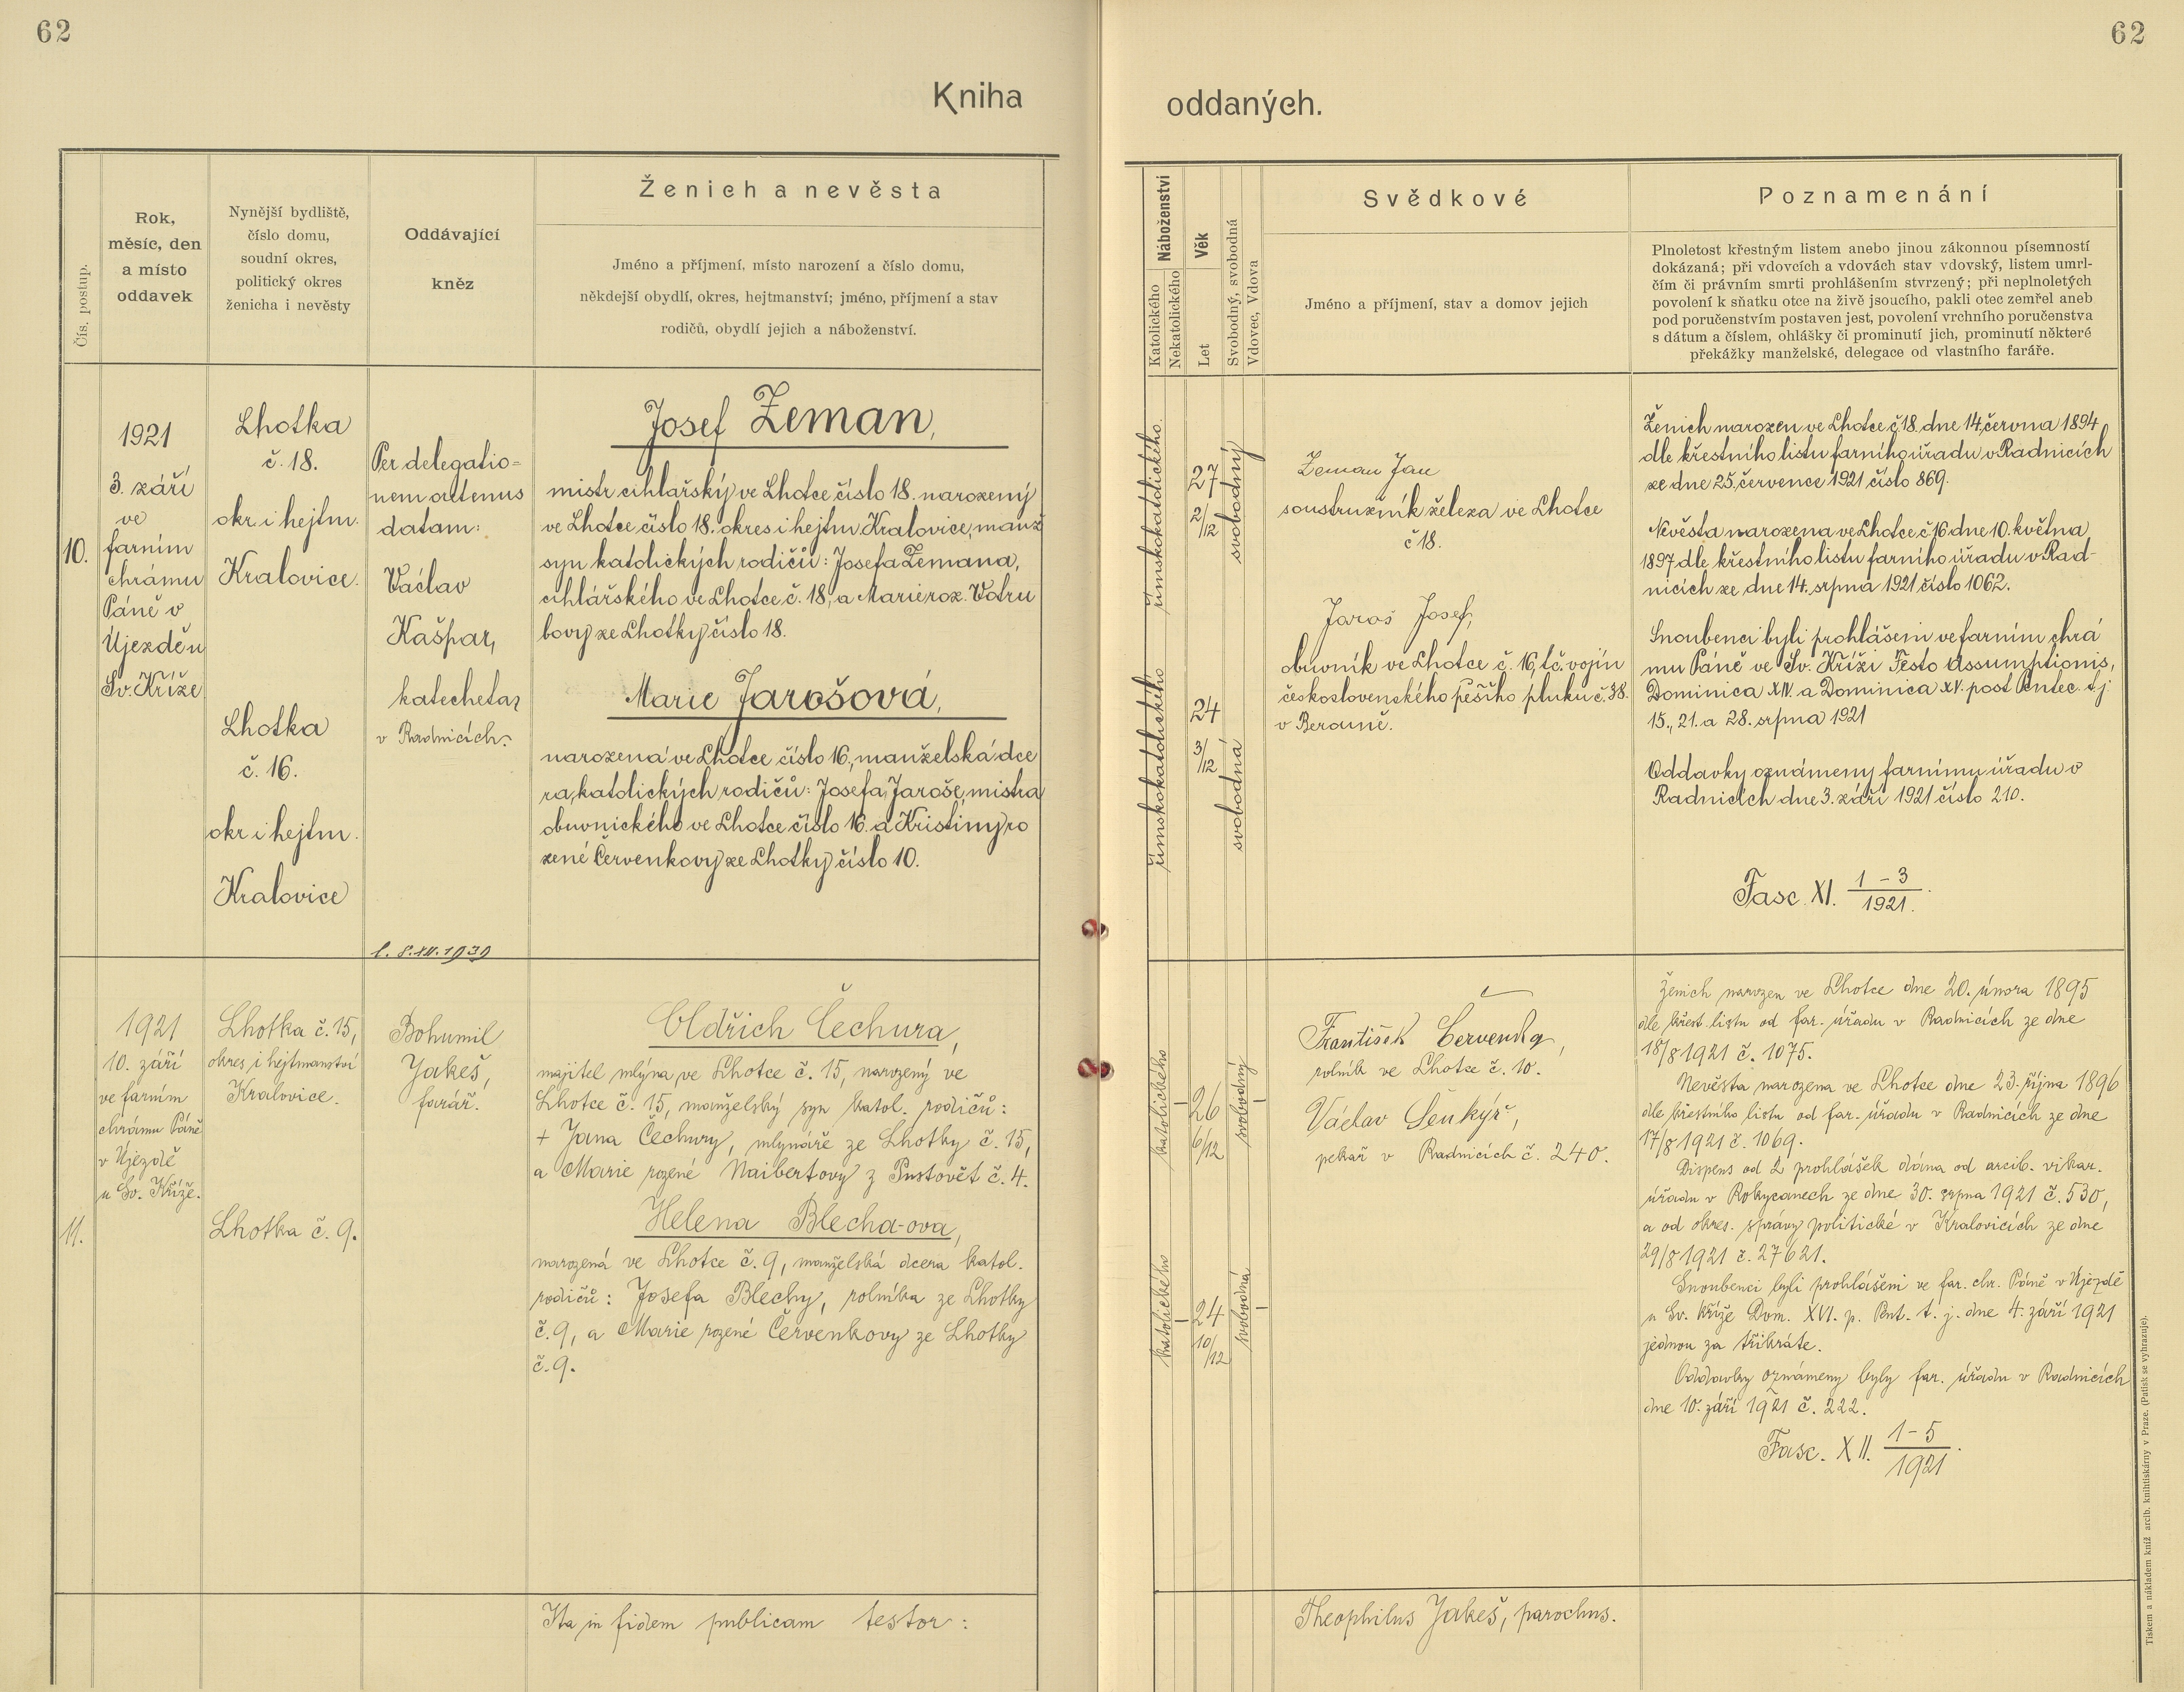 62
62
Kniha
oddaných.
Čís. postup.
Rok,
měsíc, den
a místo
oddavek
Nynější bydliště,
číslo domu,
soudní okres,
politický okres
ženicha i nevěsty
Oddávající
kněz
Ženich a nevěsta
Jméno a příjmení, místo narození a číslo domu,
někdejší obydlí, okres, hejtmanství; jméno, příjmení a stav
rodičů, obydlí jejich a náboženství.
Náboženství
Katolického
Nekatolického
Věk
Let
Svobodný, svobodná
Vdovec, Vdova
Svědkové
Jméno a příjmení, stav a domov jejich
Poznamenání
Plnoletost křestným listem anebo jinou zákonnou písemností
dokázaná; při vdovcích a vdovách stav vdovský, listem umrl-
čím či právním smrti prohlášením stvrzený; při neplnoletých
povolení k sňatku otce na živě jsoucího, pakli otec zemřel aneb
pod poručenstvím postaven jest, povolení vrchního poručenstva
s dátum a číslem, ohlášky či prominutí jich, prominutí některé
překážky manželské, delegace od vlastního faráře.
10.
1921
3. září
ve
farním
chrámu
Páně v
Újezdě u
Sv. Kříže
Lhotka
č. 18.
okr. i hejtm.
Kralovice.
Lhotka
č. 16.
okr. i hejtm.
Kralovice
Per delegatio=
nem datam:
Václav
Kašpar,
katecheta
v Radnicích.
Josef Zeman,
mistr cihlářský ve Lhotce číslo 18. narozený
ve Lhotce číslo 18. okres i hejtm Kralovice, manž
syn katolických rodičů: Josefa Zemana,
cihlářského ve Lhotce č. 18, a Marie roz. Votru
bovy ze Lhotky číslo 18.
Marie Jarošová,
narozená ve Lhotce číslo 16, manželská dce
ra, katolických rodičů: Josefa Jaroše, mistra
obuvnického ve Lhotce číslo 16. a Kristiny ro
zené Červenkovy ze Lhotky číslo 10.
římskokatolického.
římskokatolického
27
2/12
24
3/12
svobodný
svobodná
Zeman Jan
soustružník železa ve Lhotce
č 18.
Jaroš Josef,
obuvník ve Lhotce č. 16, t.č. vojín
československého pěšího pluku č. 38.
v Berouně.
Ženich narozen ve Lhotce č. 18. dne 14. června 1894
dle křestního listu farního úřadu v Radnicích
ze dne 25. července 1921 číslo 869.
Nevěsta narozena ve Lhotce č. 16 dne 10. května
1897 dle křestního listu farního úřadu v Rad-
nicích ze dne 14. srpna 1921 číslo 1062.
Snoubenci byli prohlášeni ve farním chrá
mu Páně ve Sv. Kříži Festo Assumptionis,
Dominica XIV. a Dominica XV. post Pentec. t.j.
15., 21. a 28. srpna 1921
Oddavky oznámeny farnímu úřadu v
Radnicích dne 3. září 1921 číslo 210.
Fasc. XI. 1-3/1921.
l. 8.XII.1939
11.
1921
10. září
ve farním
chrámu Páně
v Újezdě
u Sv. Kříže.
Lhotka č. 15,
okres i hejtmanství
Kralovice.
Lhotka č. 9.
Bohumil
Jakeš,
farář.
Oldřich Čechura,
majitel mlýna ve Lhotce č. 15, narozený ve
Lhotce č. 15, manželský syn katol. rodičů:
+ Jana Čechury, mlynáře ze Lhotky č. 15,
a Marie rozené Naibertovy z Pustovět č. 4.
Helena Blecha-ova,
narozená ve Lhotce č. 9, manželská dcera katol.
rodičů: Josefa Blechy, rolníka ze Lhotky
č. 9, a Marie rozené Červenkovy ze Lhotky
č. 9.
katolického
katolického
26
6/12
24
10/12
svobodný
svobodná
František Červenka,
rolník ve Lhotce č. 10.
Václav Šenkýř,
pekař v Radnicích č. 240.
Ženich narozen ve Lhotce dne 20. února 1895
dle křest. listu od far. úřadu v Radnicích ze dne
18/8 1921 č. 1075.
Nevěsta narozena ve Lhotce dne 23. října 1896
dle křestního listu od far. úřadu v Radnicích ze dne
17/8 1921 č. 1069.
Dispens od 2 prohlášek dána od arcib. vikar.
úřadu v Rokycanech ze dne 30. srpna 1921 č. 530,
a od okres. správy politické v Kralovicích ze dne
29/8 1921 č. 27621.
Snoubenci byli prohlášeni ve far. chr. Páně v Újezdě
u Sv. Kříže Dom. XVI. p. Pnt. t. j. dne 4. září 1921
jednou za třikráte.
Oddavky oznámeny byly far. úřadu v Radnicích
dne 10. září 1921 č. 222.
Fasc. XII. 1-5/1921.
Ita in fidem publicam testor:
Theophilus Jakeš, parochus.
Tiskem a nákladem kníž. arcib. knihtiskárny v Praze. (Patisk se vyhrazuje).